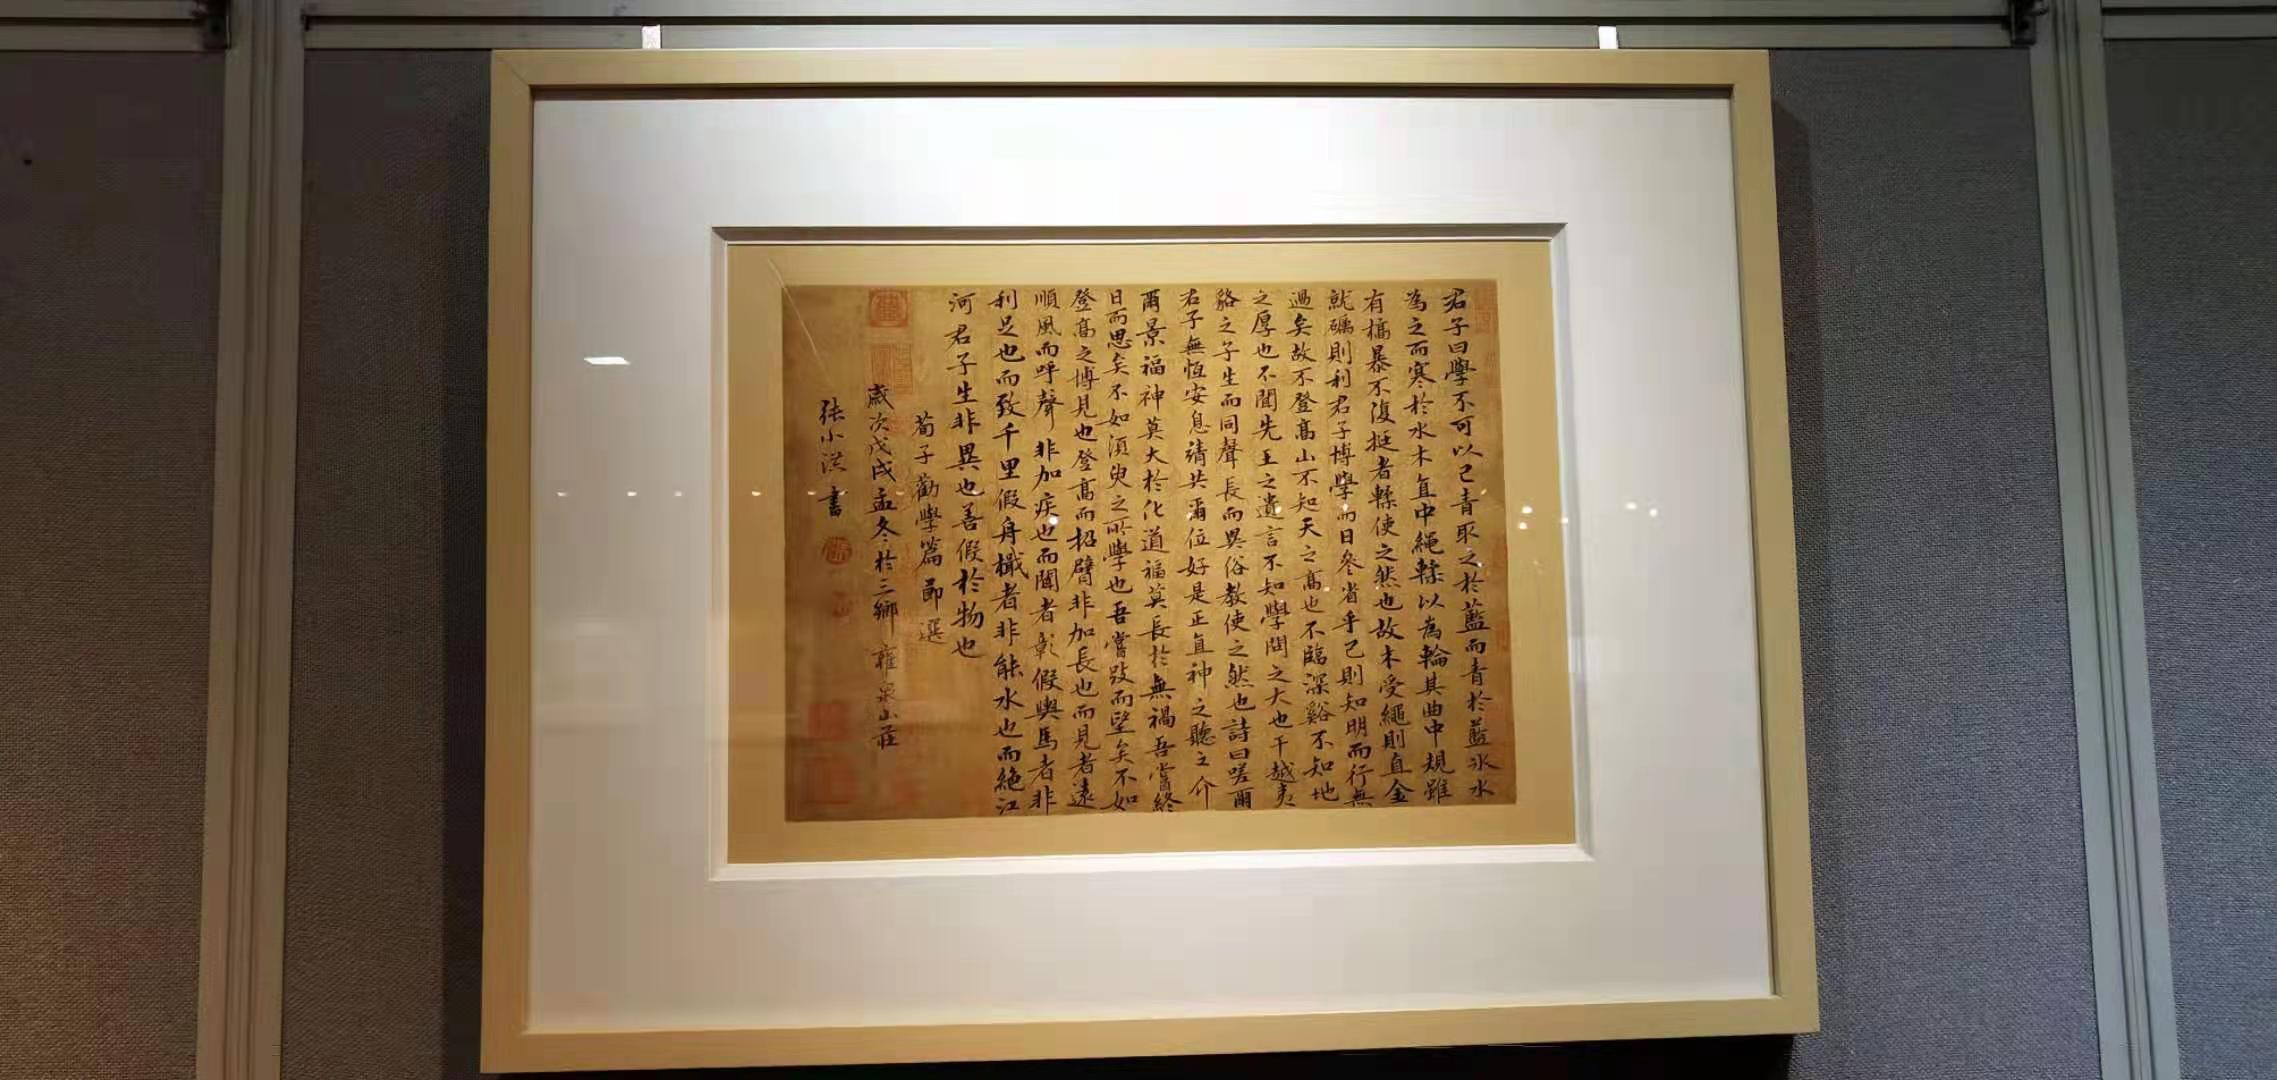 君子曰學不可以已青取之於藍而青於藍冰水
為之而寒於水木直中繩輮以為輪其曲中規雖
有槁暴不復挺者輮使之然也故木受繩則直金
就礪則利君子博學而日參省乎己則知明而行無
過矣故不登高山不知天之高也不臨深谿不知地
之厚也不聞先王之遺言不知學問之大也干越夷
貉之子生而同聲長而異俗教使之然也詩曰嗟爾
君子無恆安息靖共爾位好是正直神之聽之介
爾景福神莫大於化道福莫長於無禍吾嘗終
日而思矣不如須臾之所學也吾嘗跂而望矣不如
登高之博見也登高而招臂非加長也而見者遠
順風而呼聲非加疾也而聞者彰假輿馬者非
利足也而致千里假舟檝者非能水也而絶江
河君子生非異也善假於物也
荀子勸學篇節選
歲次戊戌孟冬於三鄉雍泉山莊
张小洪書